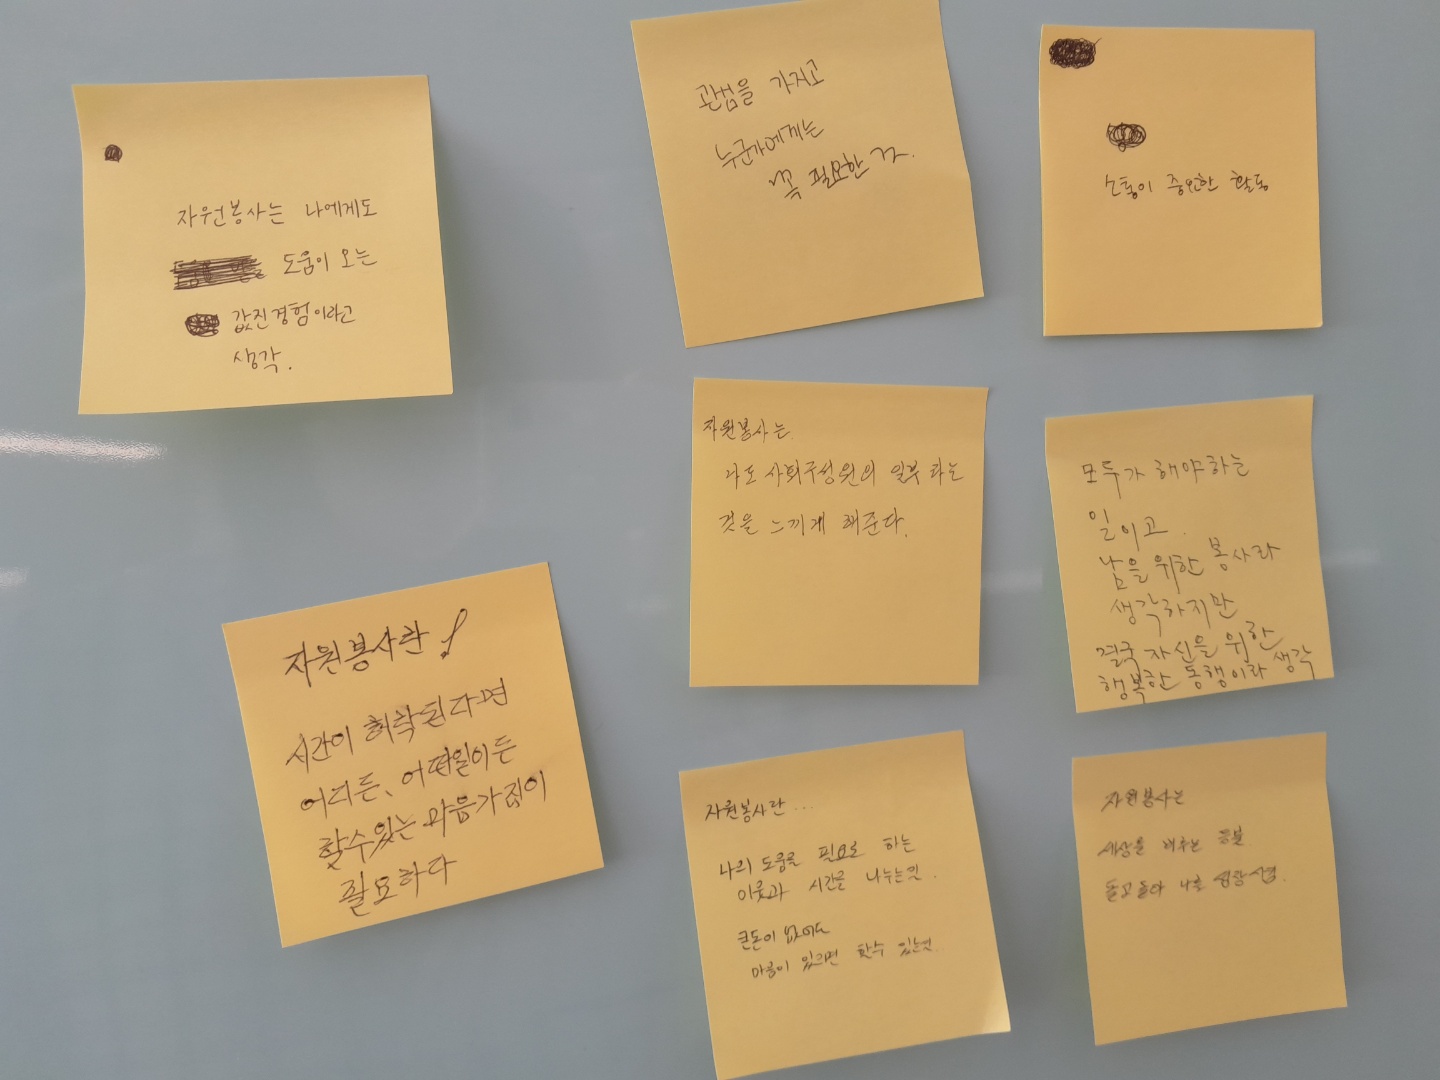 자원봉사는 나에게도
도움이 오는
값진경험이라고
생각.
관점을 가지고
누군가에게는
꼭 필요한 것.
소통이 중요한 활동
자원봉사는
나도 사회구성원의 일부라는
것을 느끼게 해준다.
모두가 해야하는
일이고.
남을 위한 봉사라
생각하지만
결국 자신을 위한
행복한 동행이라 생각
자원봉사란!
시간이 허락된다면
어디든, 어떤일이든
할수있는 마음가짐이
필요하다
자원봉사란...
나의 도움을 필요로 하는
이웃과 시간을 나누는일.
큰돈이 없어도
마음이 있으면 할수 있는것.
자원봉사는
세상을 비추는 등불
돌고돌아 나를